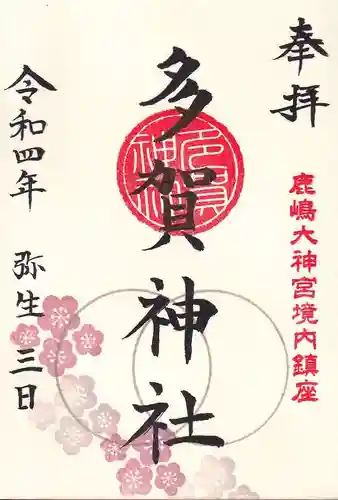 奉拝
鹿嶋大神宮境内鎮座
多賀神社
令和四年 弥生三日